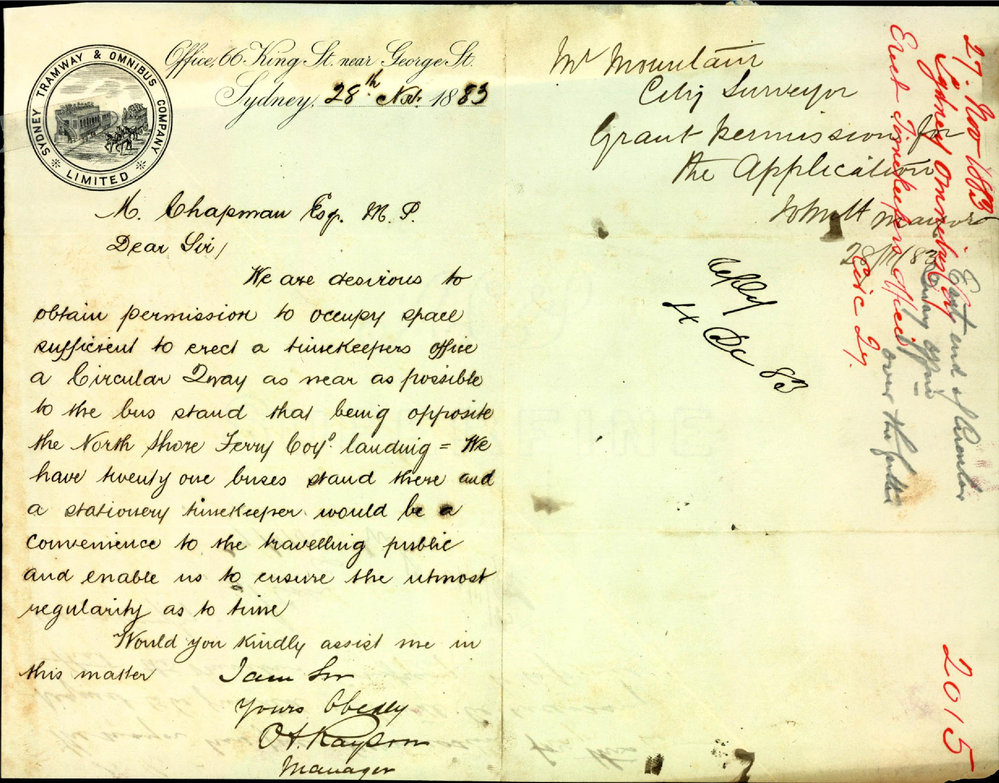 SYDNEY TRAMWAY & OMNIBUS COMPANY
LIMITED
Office, 66 King St. near George St.
Sydney, 28th Nov. 1883
M. Chapman Esq. M. P.
Dear Sir/
We are desirous to
obtain permission to occupy space
sufficient to erect a timekeepers office
a Circular Quay as near as possible
to the bus stand that being opposite
the North Shore Ferry Coys. landing = We
have twenty one buses stand there and
a stationery timekeeper would be a
convenience to the travelling public
and enable us to ensure the utmost
regularity as to time
Would you kindly assist me in
this matter I am Sir
Yours Obedly
Manager
Mr Mountain
City Surveyor
Grant permission for
the Application
Mayor
28/11/83
reply
4 Dec 83
27 Nov 1883
Sydney Omnibus Coy
Erect Timekeepers Office
Circ Qy.
East end of Circular
Quay
over the gutter
2015